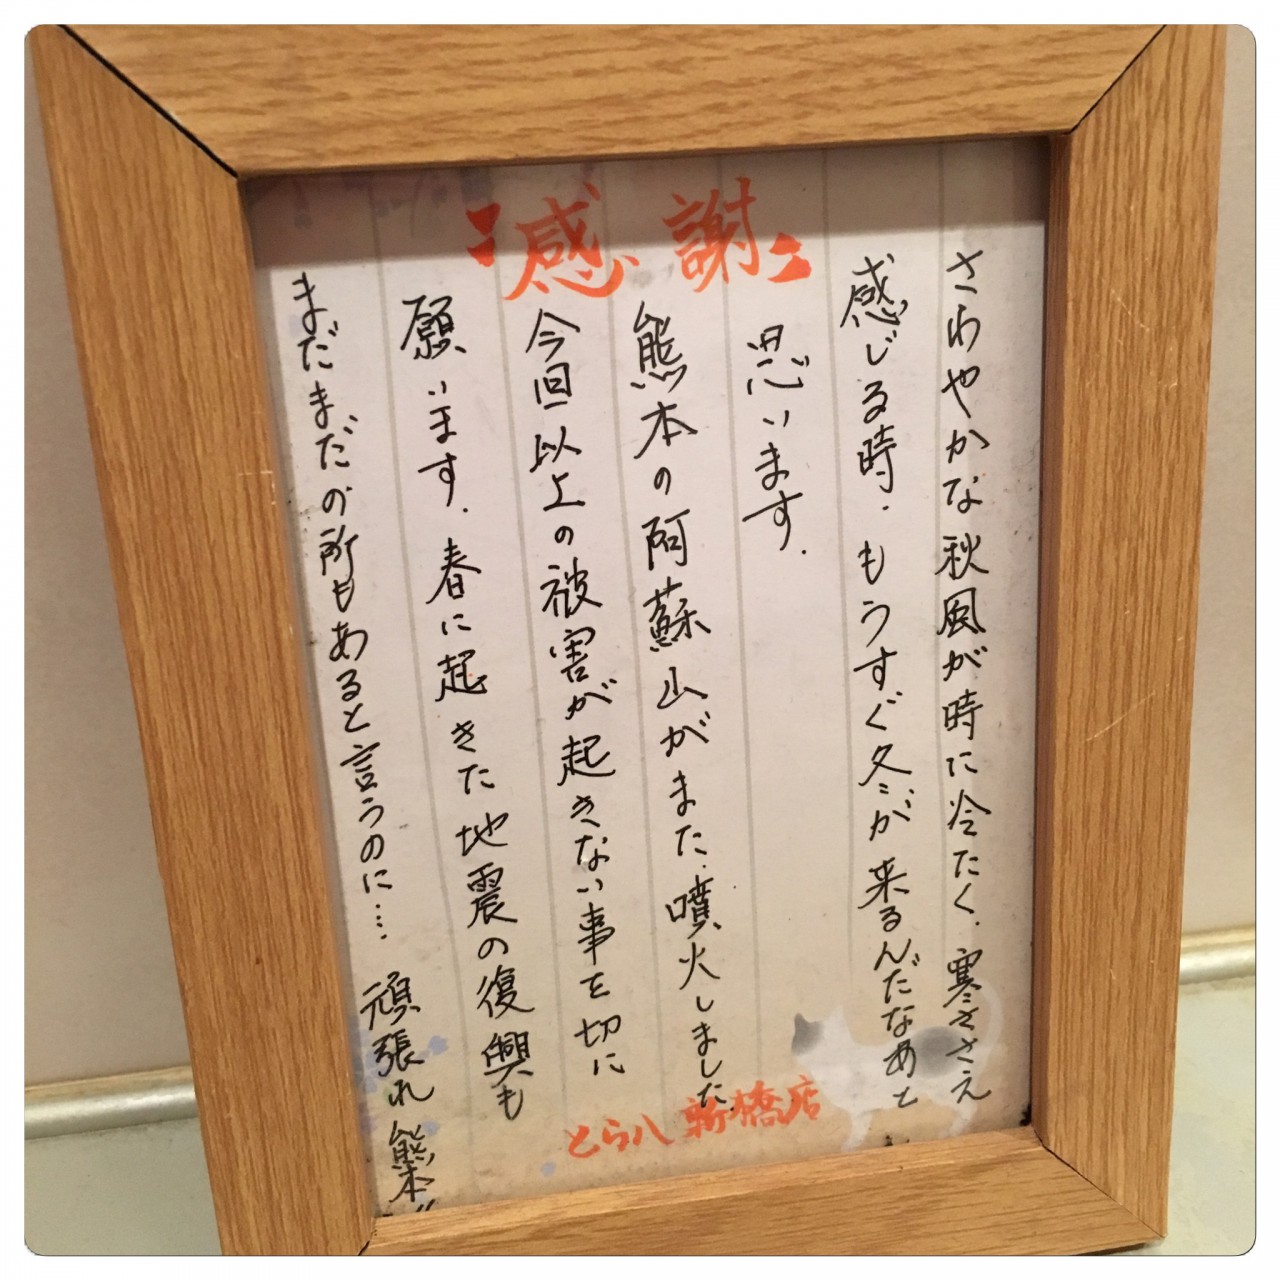 「感謝」
さわやかな秋風が時に冷たく、寒ささえ
感じる時、もうすぐ冬が来るんだなあと
思います。
熊本の阿蘇山がまた、噴火しました。
今回以上の被害が起きない事を切に
願います。春に起きた地震の復興も
まだまだの所もあると言うのに…. 頑張れ熊本!!
とら八 新橋店